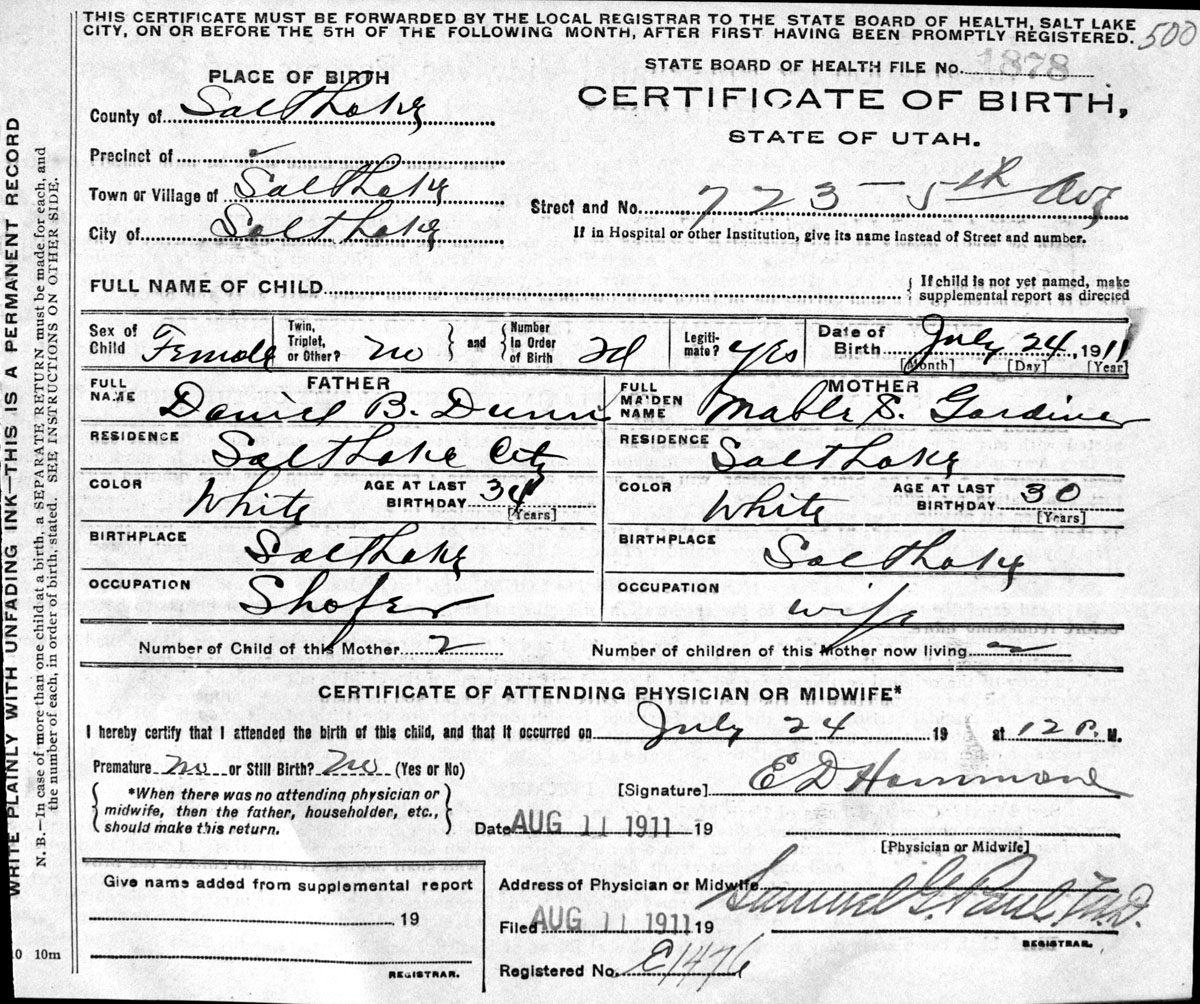 THIS CERTIFICATE MUST BE FORWARDED BY THE LOCAL REGISTRAR TO THE STATE BOARD OF HEALTH, SALT LAKE
CITY, ON OR BEFORE THE 5TH OF THE FOLLOWING MONTH, AFTER FIRST HAVING BEEN PROMPTLY REGISTERED. 500
STATE BOARD OF HEALTH FILE No. 1878
PLACE OF BIRTH
CERTIFICATE OF BIRTH,
STATE OF UTAH.
County of Salt Lake
Precinct of
Town or Village of Salt Lake
Street and No. 723 - 5th Ave
City of Salt Lake
If in Hospital or other Institution, give its name instead of Street and number.
FULL NAME OF CHILD
If child is not yet named, make
supplemental report as directed
Sex of Child Female
Twin, Triplet, or Other? no
and
Number In Order of Birth 2d
Legitimate? yes
Date of Birth July 24, 1911
[Month] [Day] [Year]
FATHER
FULL NAME Daniel B. Dunn
RESIDENCE Salt Lake City
COLOR White AGE AT LAST BIRTHDAY 34
[Years]
BIRTHPLACE Salt Lake
OCCUPATION Shofer
MOTHER
FULL MAIDEN NAME Mable S. Gardiner
RESIDENCE Salt Lake
COLOR White AGE AT LAST BIRTHDAY 30
[Years]
BIRTHPLACE Salt Lake
OCCUPATION wife
Number of Child of this Mother 2 Number of children of this Mother now living 2
CERTIFICATE OF ATTENDING PHYSICIAN OR MIDWIFE*
I hereby certify that I attended the birth of this child, and that it occurred on July 24 19 at 12 P. M.
Premature no or Still Birth? no (Yes or No)
*When there was no attending physician or
midwife, then the father, householder, etc.,
should make this return.
[Signature] E D Hammond
Date AUG 11 1911 19
[Physician or Midwife]
Give name added from supplemental report
19
REGISTRAR.
Address of Physician or Midwife
Samuel G. Paul, M.D.
Filed AUG 11 1911 19
REGISTRAR.
Registered No. E1476
10 10m
WRITE PLAINLY WITH UNFADING INK—THIS IS A PERMANENT RECORD
N. B.—In case of more than one child at a birth, a SEPARATE RETURN must be made for each, and
the number of each, in order of birth, stated. SEE INSTRUCTIONS ON OTHER SIDE.